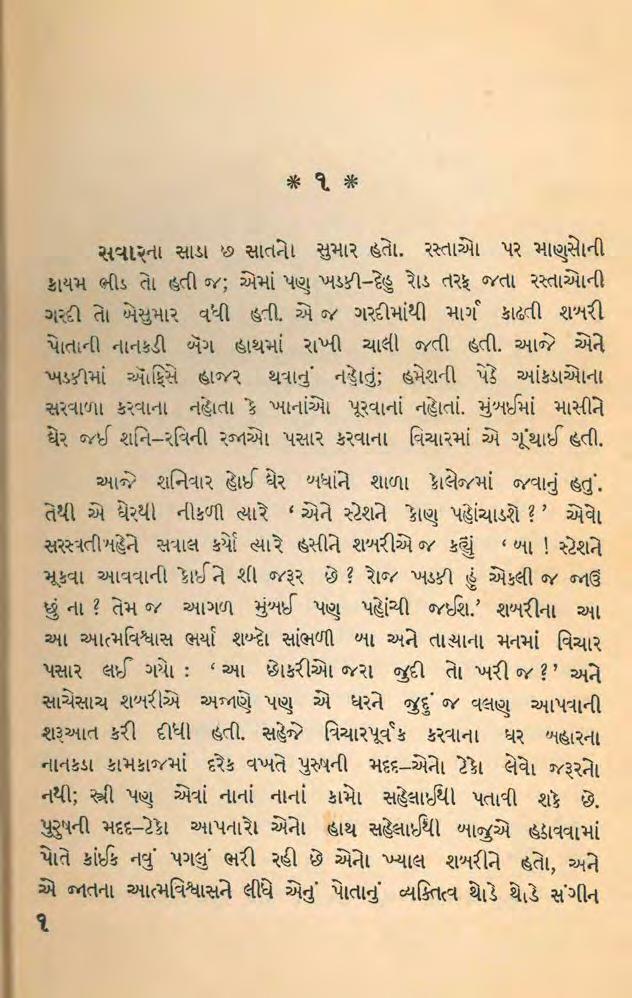 * ૧ *
સવારના સાડા છ સાતનો સુમાર હતો. રસ્તાઓ પર માણસોની
કાયમ ભીડ તો હતી જ; એમાં પણ ખડકી-દેહુ રોડ તરફ જતા રસ્તાઓની
ગરદી તો બેસુમાર વધી હતી. એ જ ગરદીમાંથી માર્ગ કાઢતી શબરી
પોતાની નાનકડી બૅગ હાથમાં રાખી ચાલી જતી હતી. આજે એને
ખડકીમાં ઑફિસે હાજર થવાનું નહોતું; હમેશની પેઠે આંકડાઓના
સરવાળા કરવાના નહોતા કે ખાનાંઓ પૂરવાનાં નહોતાં. મુંબઈમાં માસીને
ઘેર જઈ શનિ-રવિની રજાઓ પસાર કરવાના વિચારમાં એ ગૂંથાઈ હતી.
આજે શનિવાર હોઈ ઘેર બધાંને શાળા કોલેજમાં જવાનું હતું.
તેથી એ ઘેરથી નીકળી ત્યારે ‘ એને સ્ટેશને કોણ પહોંચાડશે ? ’ એવો
સરસ્વતીબહેને સવાલ કર્યો ત્યારે હસીને શબરીએ જ કહ્યું ‘ બા ! સ્ટેશને
મૂકવા આવવાની કોઈને શી જરૂર છે ? રોજ ખડકી હું એકલી જ જાઉં
છું ના ? તેમ જ આગળ મુંબઈ પણ પહોંચી જઈશ.’ શબરીના આ
આ આત્મવિશ્વાસ ભર્યા શબ્દો સાંભળી બા અને તાત્યાના મનમાં વિચાર
પસાર થઈ ગયો : ‘ આ છોકરીઓ જરા જુદી તો ખરી જ ? ’ અને
સાચેસાચ શબરીએ અજાણે પણ એ ઘરને જુદું જ વલણ આપવાની
શરૂઆત કરી દીધી હતી. સહેજે વિચારપૂર્વક કરવાના ઘર બહારના
નાનકડા કામકાજમાં દરેક વખતે પુરુષની મદદ-એનો ટેકો લેવો જરૂરનો
નથી; સ્ત્રી પણ એવાં નાનાં નાનાં કામો સહેલાઈથી પતાવી શકે છે.
પુરુષની મદદ-ટેકો આપનારો એનો હાથ સહેલાઈથી બાજુએ હઠાવવામાં
પોતે કાંઈક નવું પગલું ભરી રહી છે એનો ખ્યાલ શબરીને હતો, અને
એ જાતના આત્મવિશ્વાસને લીધે એનું પોતાનું વ્યક્તિત્વ થોડે થોડે સંગીન
૧